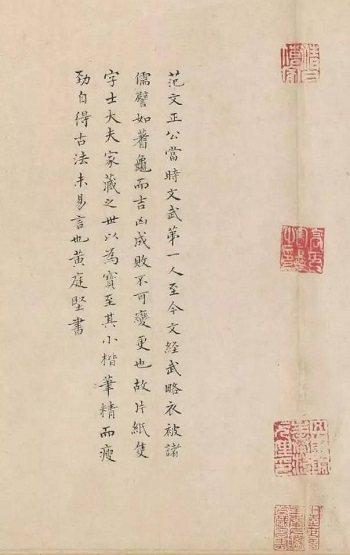 范文正公當時文武第一人至今文經武略衣被諸
儒譬如蓍龜而吉凶成敗不可變更也故片紙隻
字士大夫家藏之世以為寶至其小楷筆精而瘦
勁自得古法未易言也黃庭堅書